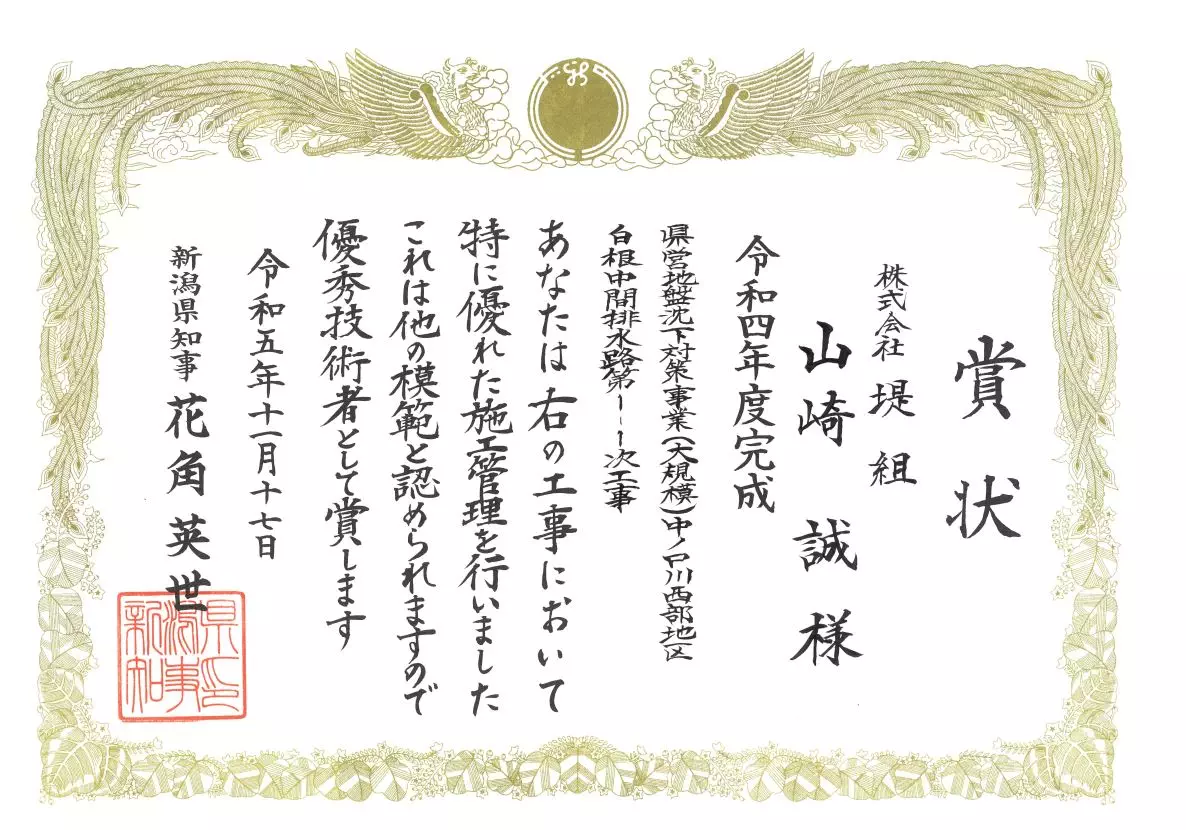 賞状
株式会社 堤組
山崎 誠 様
令和四年度完成
県営地盤沈下対策事業(大規模)中ノ口川西部地区
白根中間排水路第一ー一次工事
あなたは右の工事において
特に優れた施工管理を行いました
これは他の模範と認められますので
優秀技術者として賞します
令和五年十一月十七日
新潟県知事 花角英世
新潟県知事印